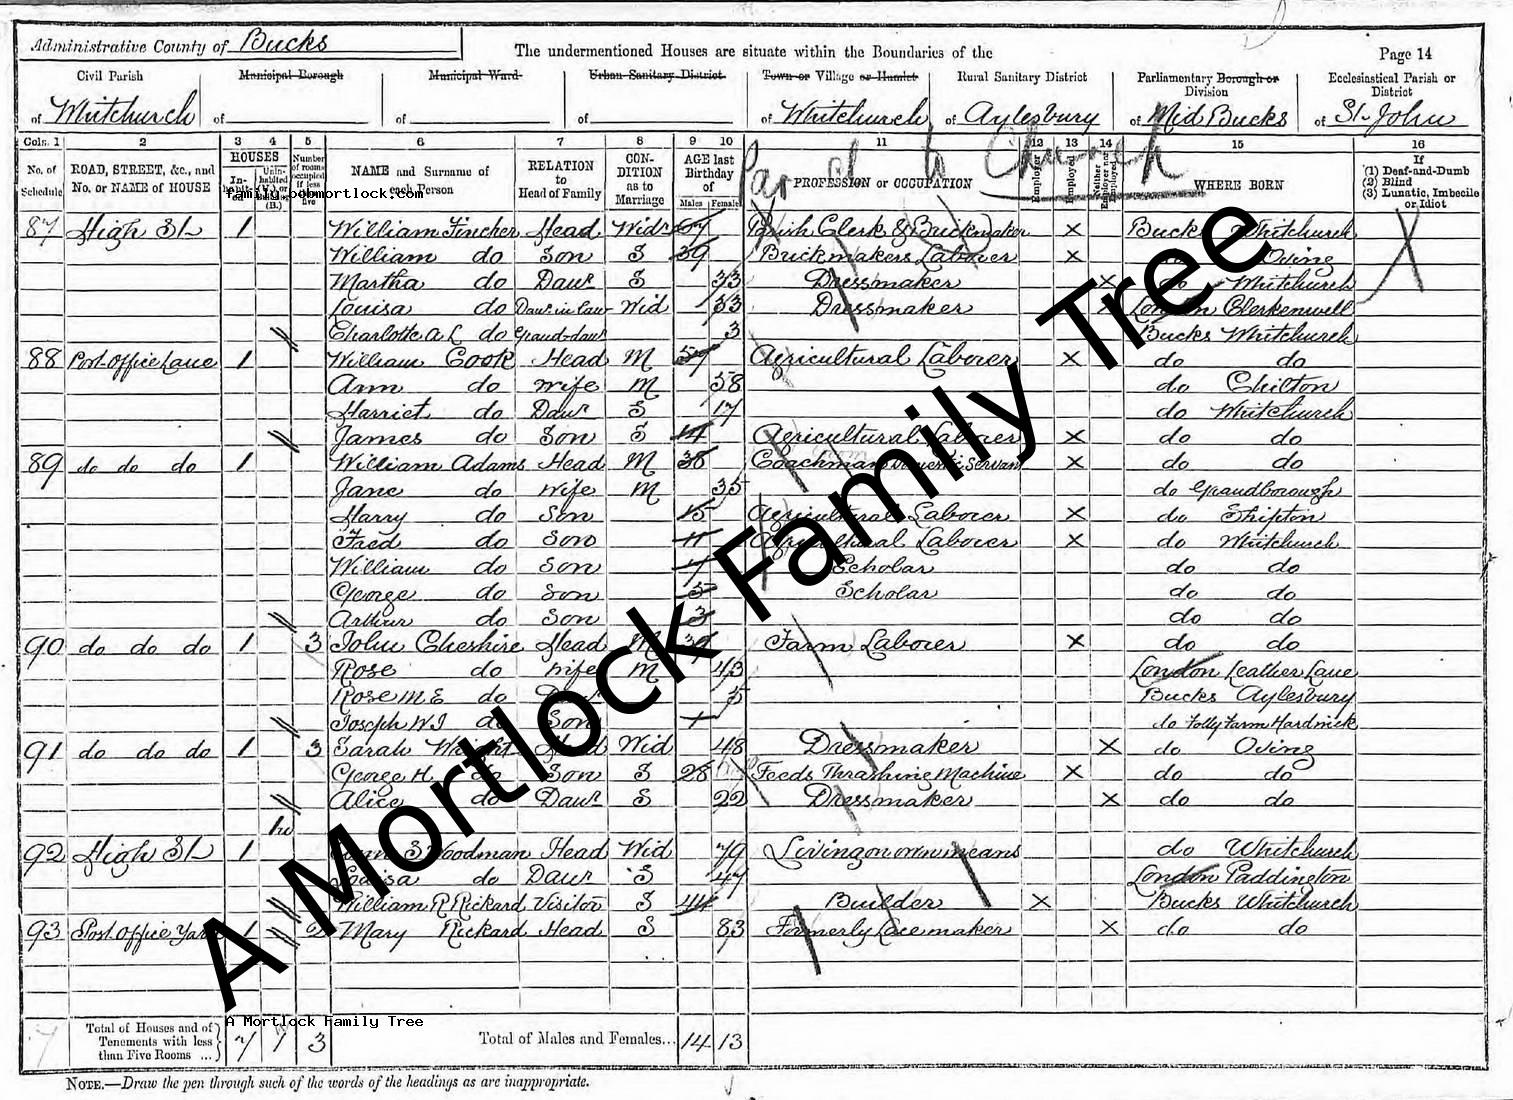 Administrative County of Bucks
The undermentioned Houses are situate within the Boundaries of the
Page 14
Civil Parish Municipal Borough Municipal Ward Urban Sanitary District Town or Village or Hamlet Rural Sanitary District Parliamentary Borough or Division Ecclesiastical Parish or District
of Whitchurch of of of of Whitchurch of Aylesbury of Mid Bucks of St. John
Cols. 1 2 3 4 5 6 7 8 9 10 11 12 13 14 15 16
No. of Schedule ROAD, STREET, &c., and No. or NAME of HOUSE HOUSES Number of rooms occupied if less than five NAME and Surname of each Person RELATION to Head of Family CONDITION as to Marriage AGE last Birthday of Males Females PROFESSION or OCCUPATION Employer Employed Neither Employer nor Employed WHERE BORN If (1) Deaf-and-Dumb (2) Blind (3) Lunatic, Imbecile or Idiot
Part of to Church
family.bobmortlock.com
87 High St 1 William Fincher Head Widr 67 Parish Clerk & Brickmaker X Bucks Whitchurch
William do Son S 39 Brickmakers Labourer X Oving
Martha do Daur S 33 Dressmaker X do Whitchurch
Louisa do Daur in law Wid 33 Dressmaker X London Clerkenwell
Charlotte A L do Grand-daur 3 Bucks Whitchurch
88 Post Office Lane 1 William Cook Head M 57 Agricultural Laborer X do do
Ann do Wife M 58 do Chilton
Harriet do Daur S 17 do Whitchurch
James do Son S 14 Agricultural Laborer X do do
89 do do do 1 William Adams Head M 38 Coachman Domestic Servant X do do
Jane do Wife M 35 do Grandborough
Harry do Son 15 Agricultural Laborer X do Shipton
Fred do Son 11 Agricultural Laborer X do Whitchurch
William do Son 7 Scholar do do
George do Son 5 Scholar do do
Arthur do Son 3 do do
90 do do do 1 3 John Cheshire Head M 39 Farm Laborer X do do
Rose do Wife M 43 London Leather Lane
Rose M E do Daur 5 Bucks Aylesbury
Joseph W J do Son do Folly Farm Hardwick
91 do do do 1 3 Sarah Wright Head Wid 48 Dressmaker X do Oving
George H. do Son S 28 Feeds Thrashing Machine X do do
Alice do Daur S 22 Dressmaker X do do
92 High St 1 S Woodman Head Wid 79 Living on own means do Whitchurch
Louisa do Daur S 47 London Paddington
William R Rickard Visitor S 44 Builder X Bucks Whitchurch
93 Post Office Yard 1 2 Mary Rickard Head S 83 Formerly Lace maker X do do
A Mortlock Family Tree
A Mortlock Family Tree
7 Total of Houses and of Tenements with less than Five Rooms ... 7 1 3 Total of Males and Females... 14 13
NOTE.—Draw the pen through such of the words of the headings as are inappropriate.